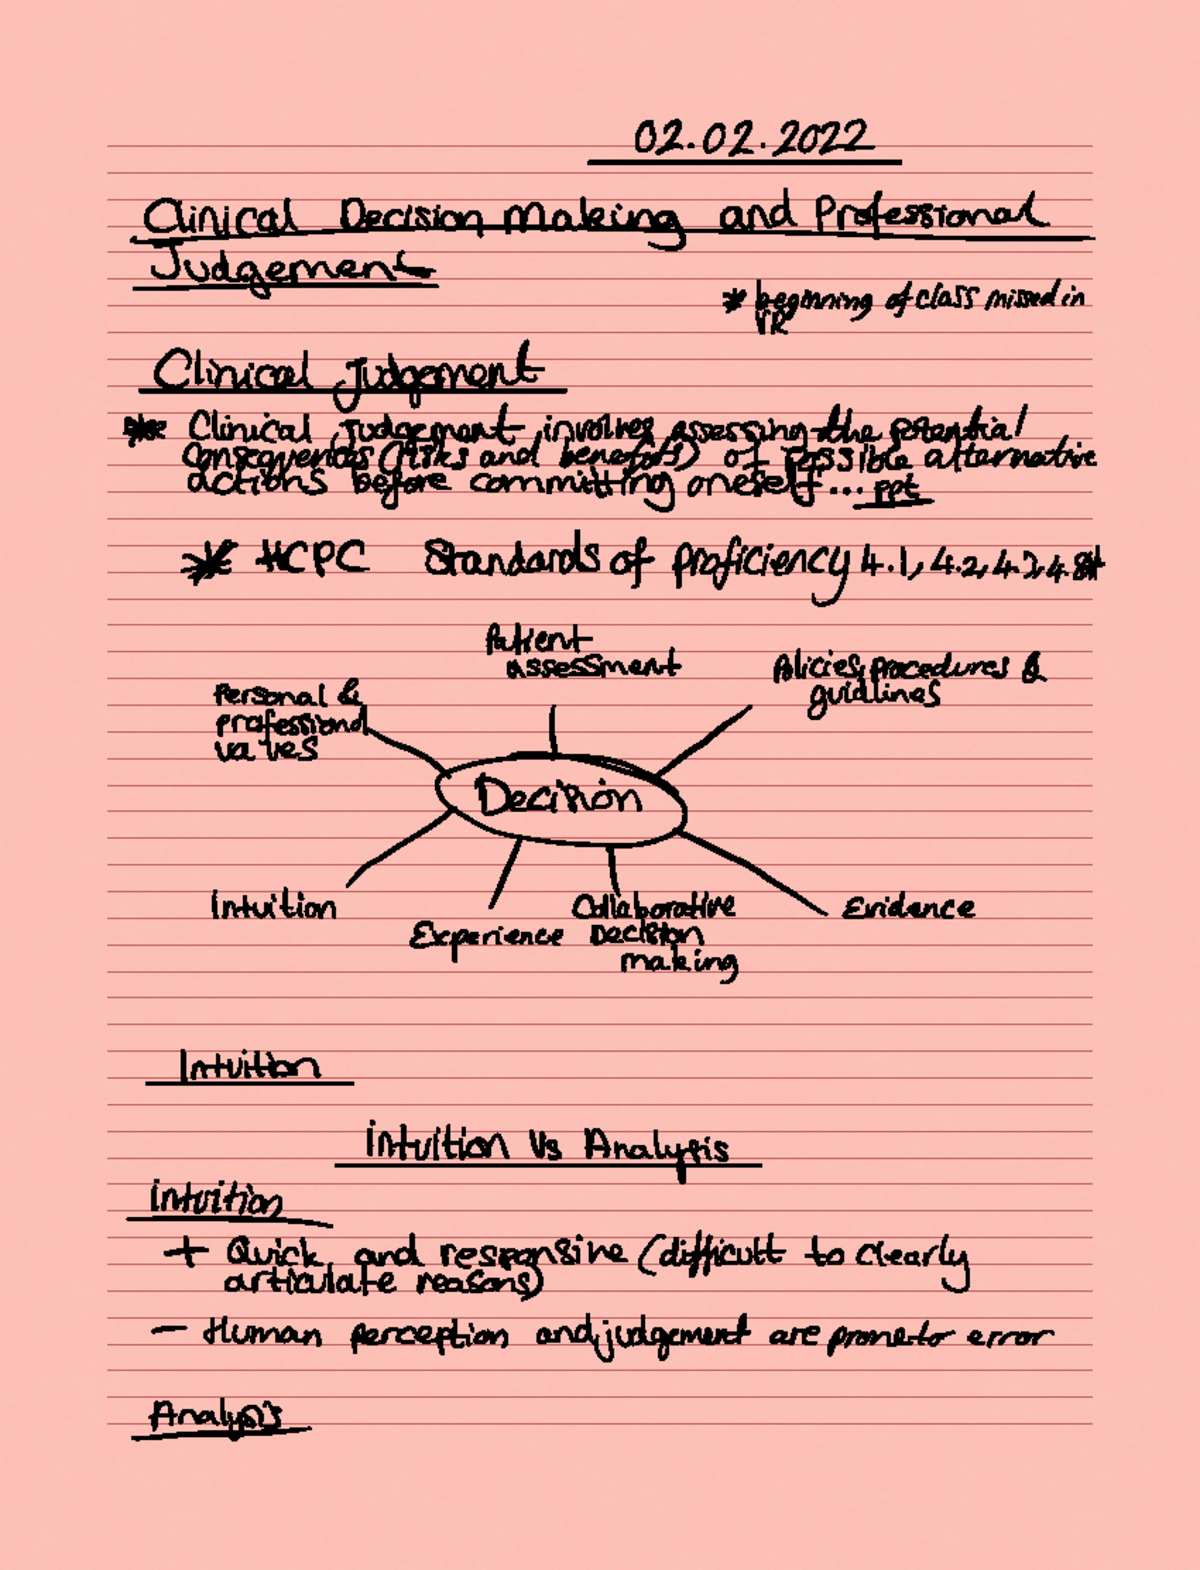 02.02.2022
Clinical Decision Making and Professional
Judgement
* beginning of class missed in
VR
Clinical Judgement
** Clinical Judgement involves assessing the potential
Consequences (risks and benefits) of possible alternative
actions before committing oneself... ppt
* HCPC Standards of proficiency 4.1, 4.2, 4.3, 4.8*
Patient
assessment
Policies, procedures &
guidlines
Personal &
professional
values
Decision
Intuition
Experience
Collaborative
Decision
making
Evidence
Intuition
Intuition Vs Analysis
Intuition
+ Quick and responsive (difficult to clearly
articulate reasons)
- Human perception and judgement are prone to error
Analysis